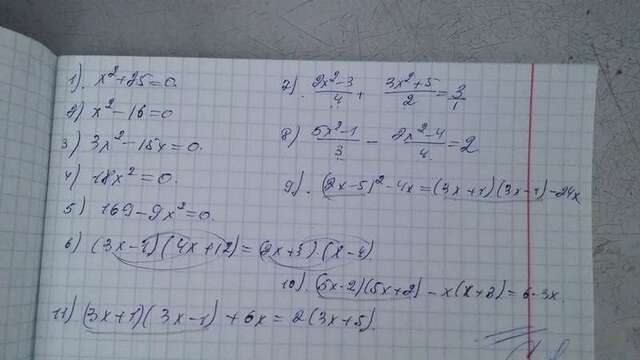 1). x²+25=0.
2) x²-16=0
3) 3x²-15x=0.
4) 18x²=0.
5) 169-9x²=0.
6) (3x-1)(4x+12)=(2x+3)(x-4).
7). (2x²-3)/4 + (3x²+5)/2 = 3/1
8) (5x²-1)/3 - (2x²-4)/4 = 2
9). (2x-5)²-4x=(3x+1)(3x-1)-24x
10). (5x-2)(5x+2)-x(x+3)=6-3x.
11) (3x+1)(3x-1)+6x=2(3x+5).